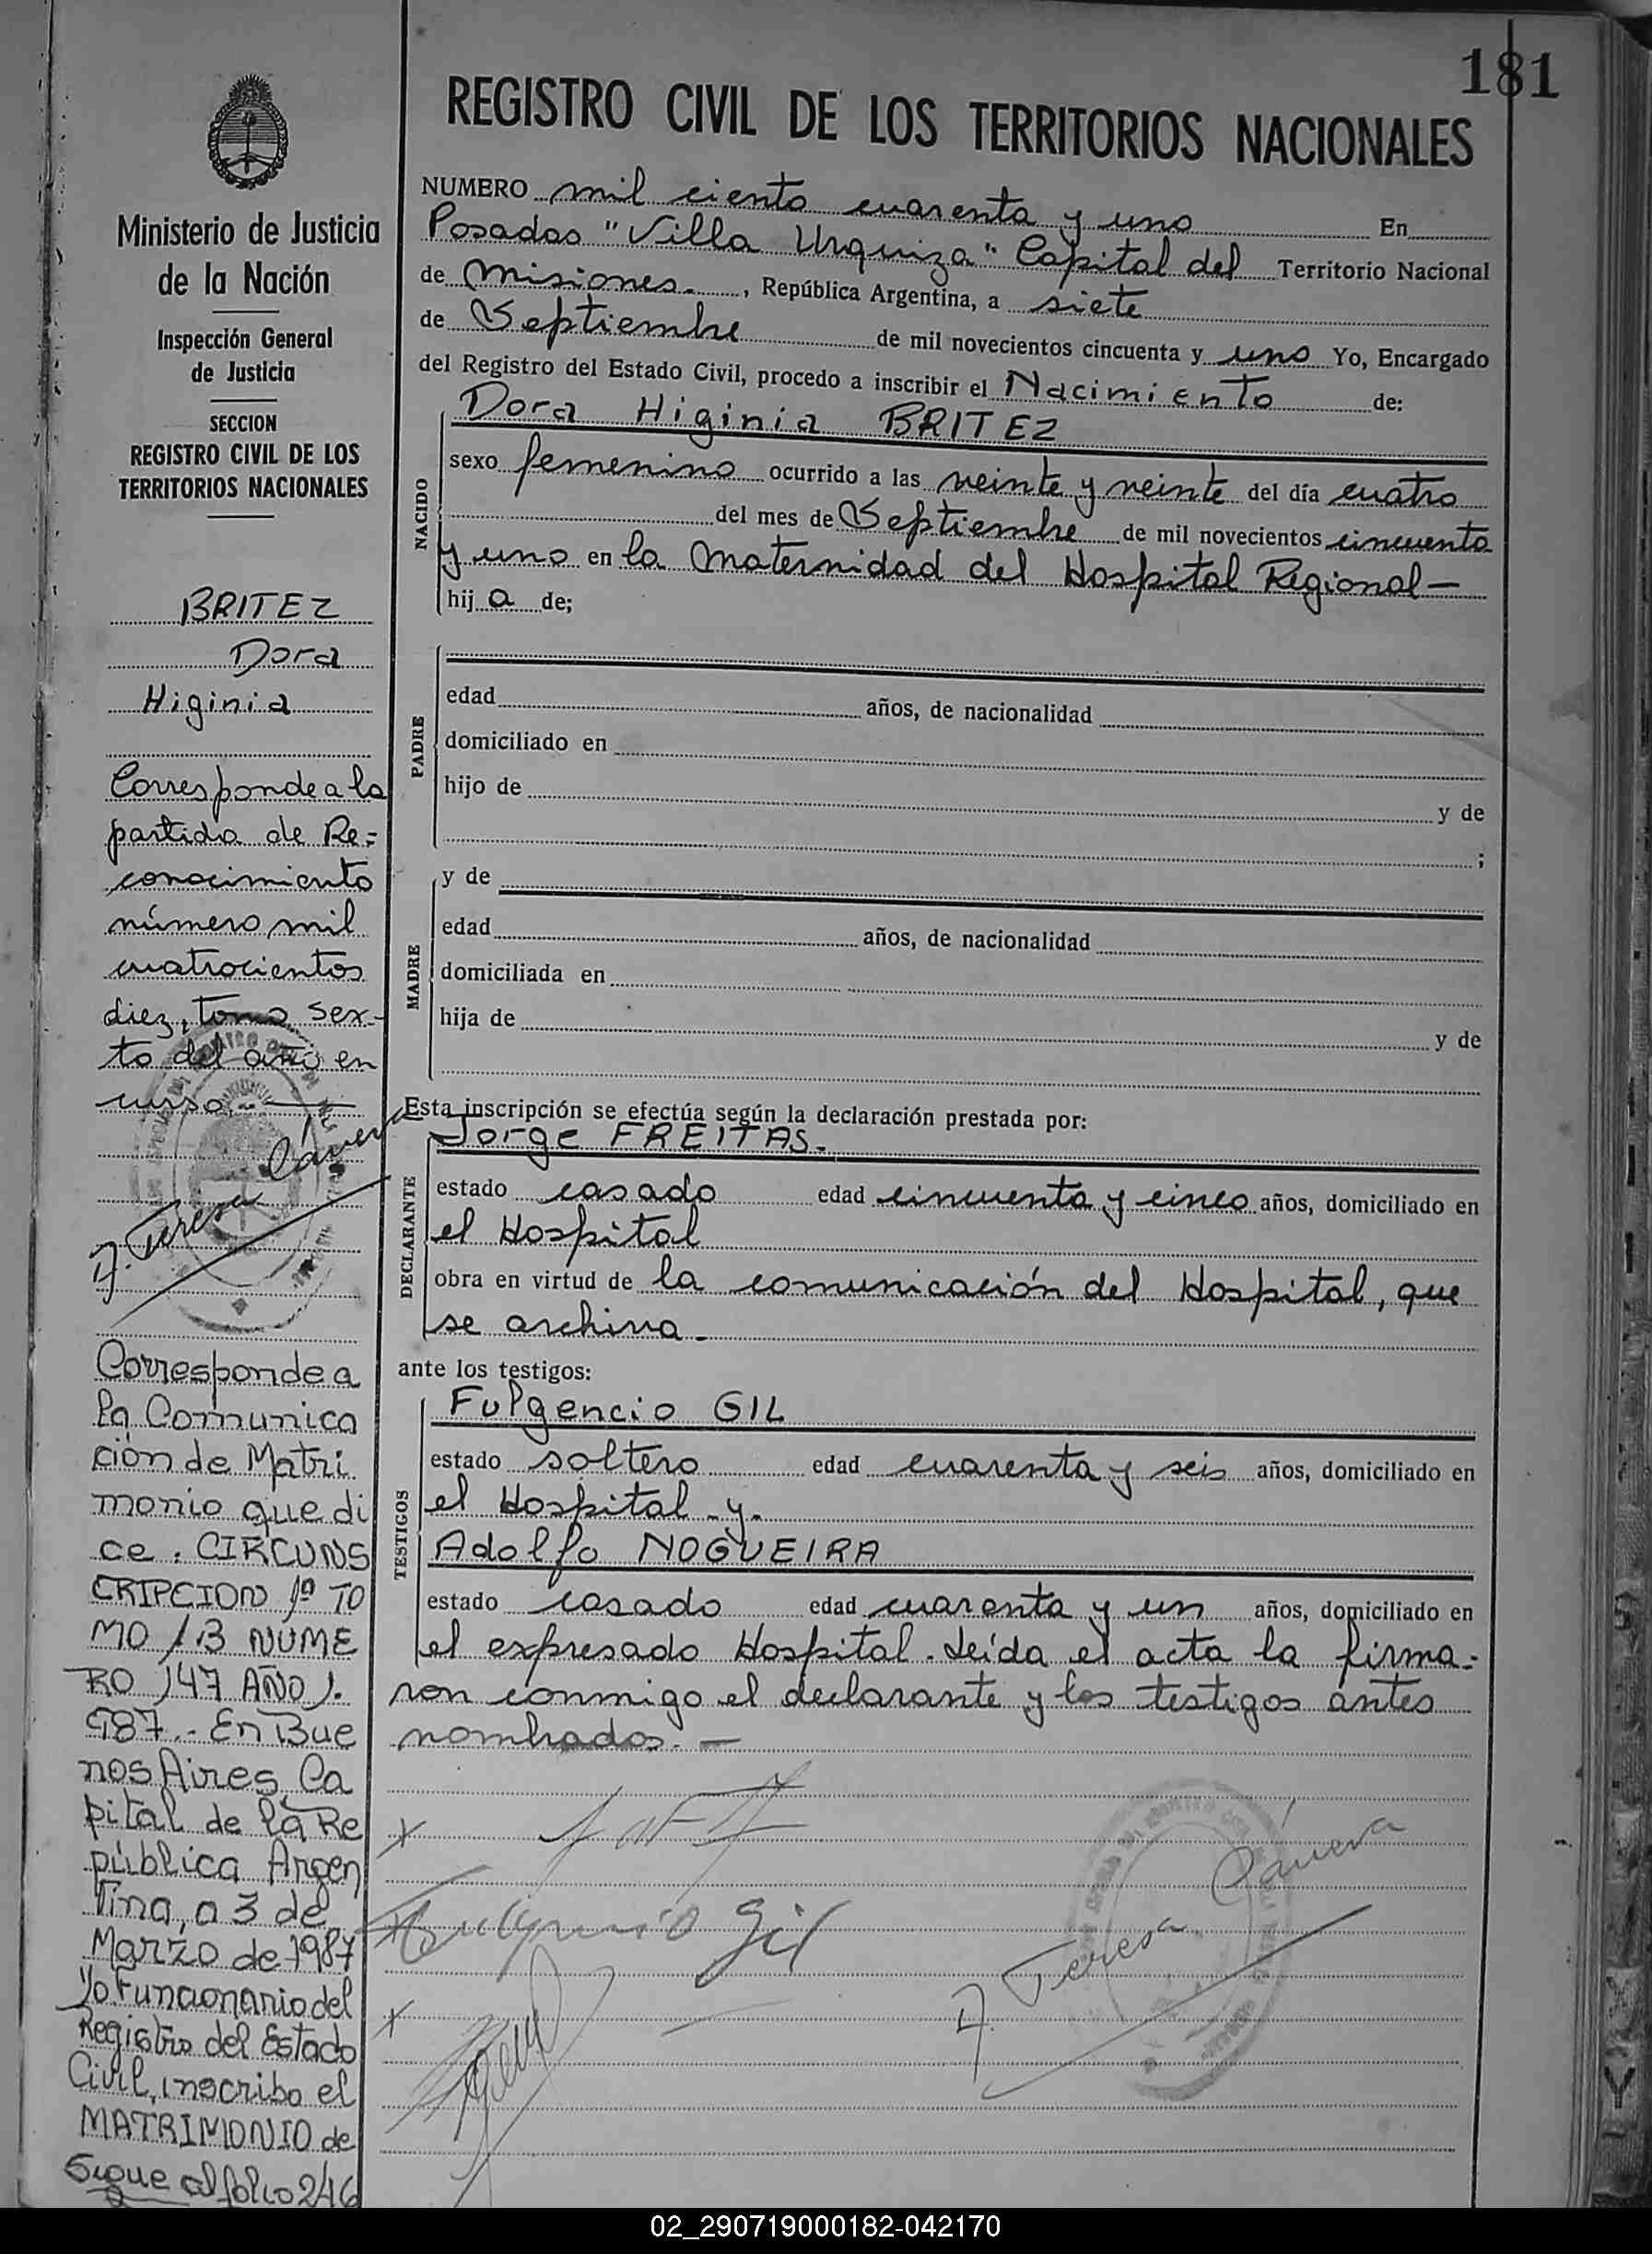 181
REGISTRO CIVIL DE LOS TERRITORIOS NACIONALES
Ministerio de Justicia
de la Nación
Inspección General
de Justicia
SECCION
REGISTRO CIVIL DE LOS
TERRITORIOS NACIONALES
BRITEZ
Dora
Higinia
Corresponde a la
partida de Re=
conocimiento
número mil
cuatrocientos
diez, tomo sex-
to del año en
curso.-
A. Teresa Cáneva
Corresponde a
la Comunica
ción de Matri
monio que di
ce. CIRCUNS
CRIPCION 1º TO
MO 1B NUME
RO 147 AÑO 1.
987.- En Bue
nos Aires, Ca
pital de la Re
pública Argen
tina, a 3 de
Marzo de 1987
Yo Funcionario del
Registro del Estado
Civil, inscribo el
MATRIMONIO de
Sigue al folio 246
NUMERO mil ciento cuarenta y uno En
Posadas "Villa Urquiza" Capital del Territorio Nacional
de Misiones. , República Argentina, a siete
de Septiembre de mil novecientos cincuenta y uno Yo, Encargado
del Registro del Estado Civil, procedo a inscribir el Nacimiento de:
NACIDO
Dora Higinia BRITEZ
sexo femenino ocurrido a las veinte y veinte del día cuatro
del mes de Septiembre de mil novecientos cincuenta
y uno en la Maternidad del Hospital Regional-
hij a de;
PADRE
edad años, de nacionalidad
domiciliado en
hijo de y de
;
MADRE
y de
edad años, de nacionalidad
domiciliada en
hija de y de
Esta inscripción se efectúa según la declaración prestada por:
DECLARANTE
Jorge FREITAS.
estado casado edad cincuenta y cinco años, domiciliado en
el Hospital
obra en virtud de la comunicación del Hospital, que
se archiva.
ante los testigos:
TESTIGOS
Fulgencio GIL
estado soltero edad cuarenta y seis años, domiciliado en
el Hospital y.
Adolfo NOGUEIRA
estado casado edad cuarenta y un años, domiciliado en
el expresado Hospital. Leída el acta la firma=
ron conmigo el declarante y los testigos antes
nombrados.-
Fulgencio Gil
A. Teresa Cáneva
02_290719000182-042170